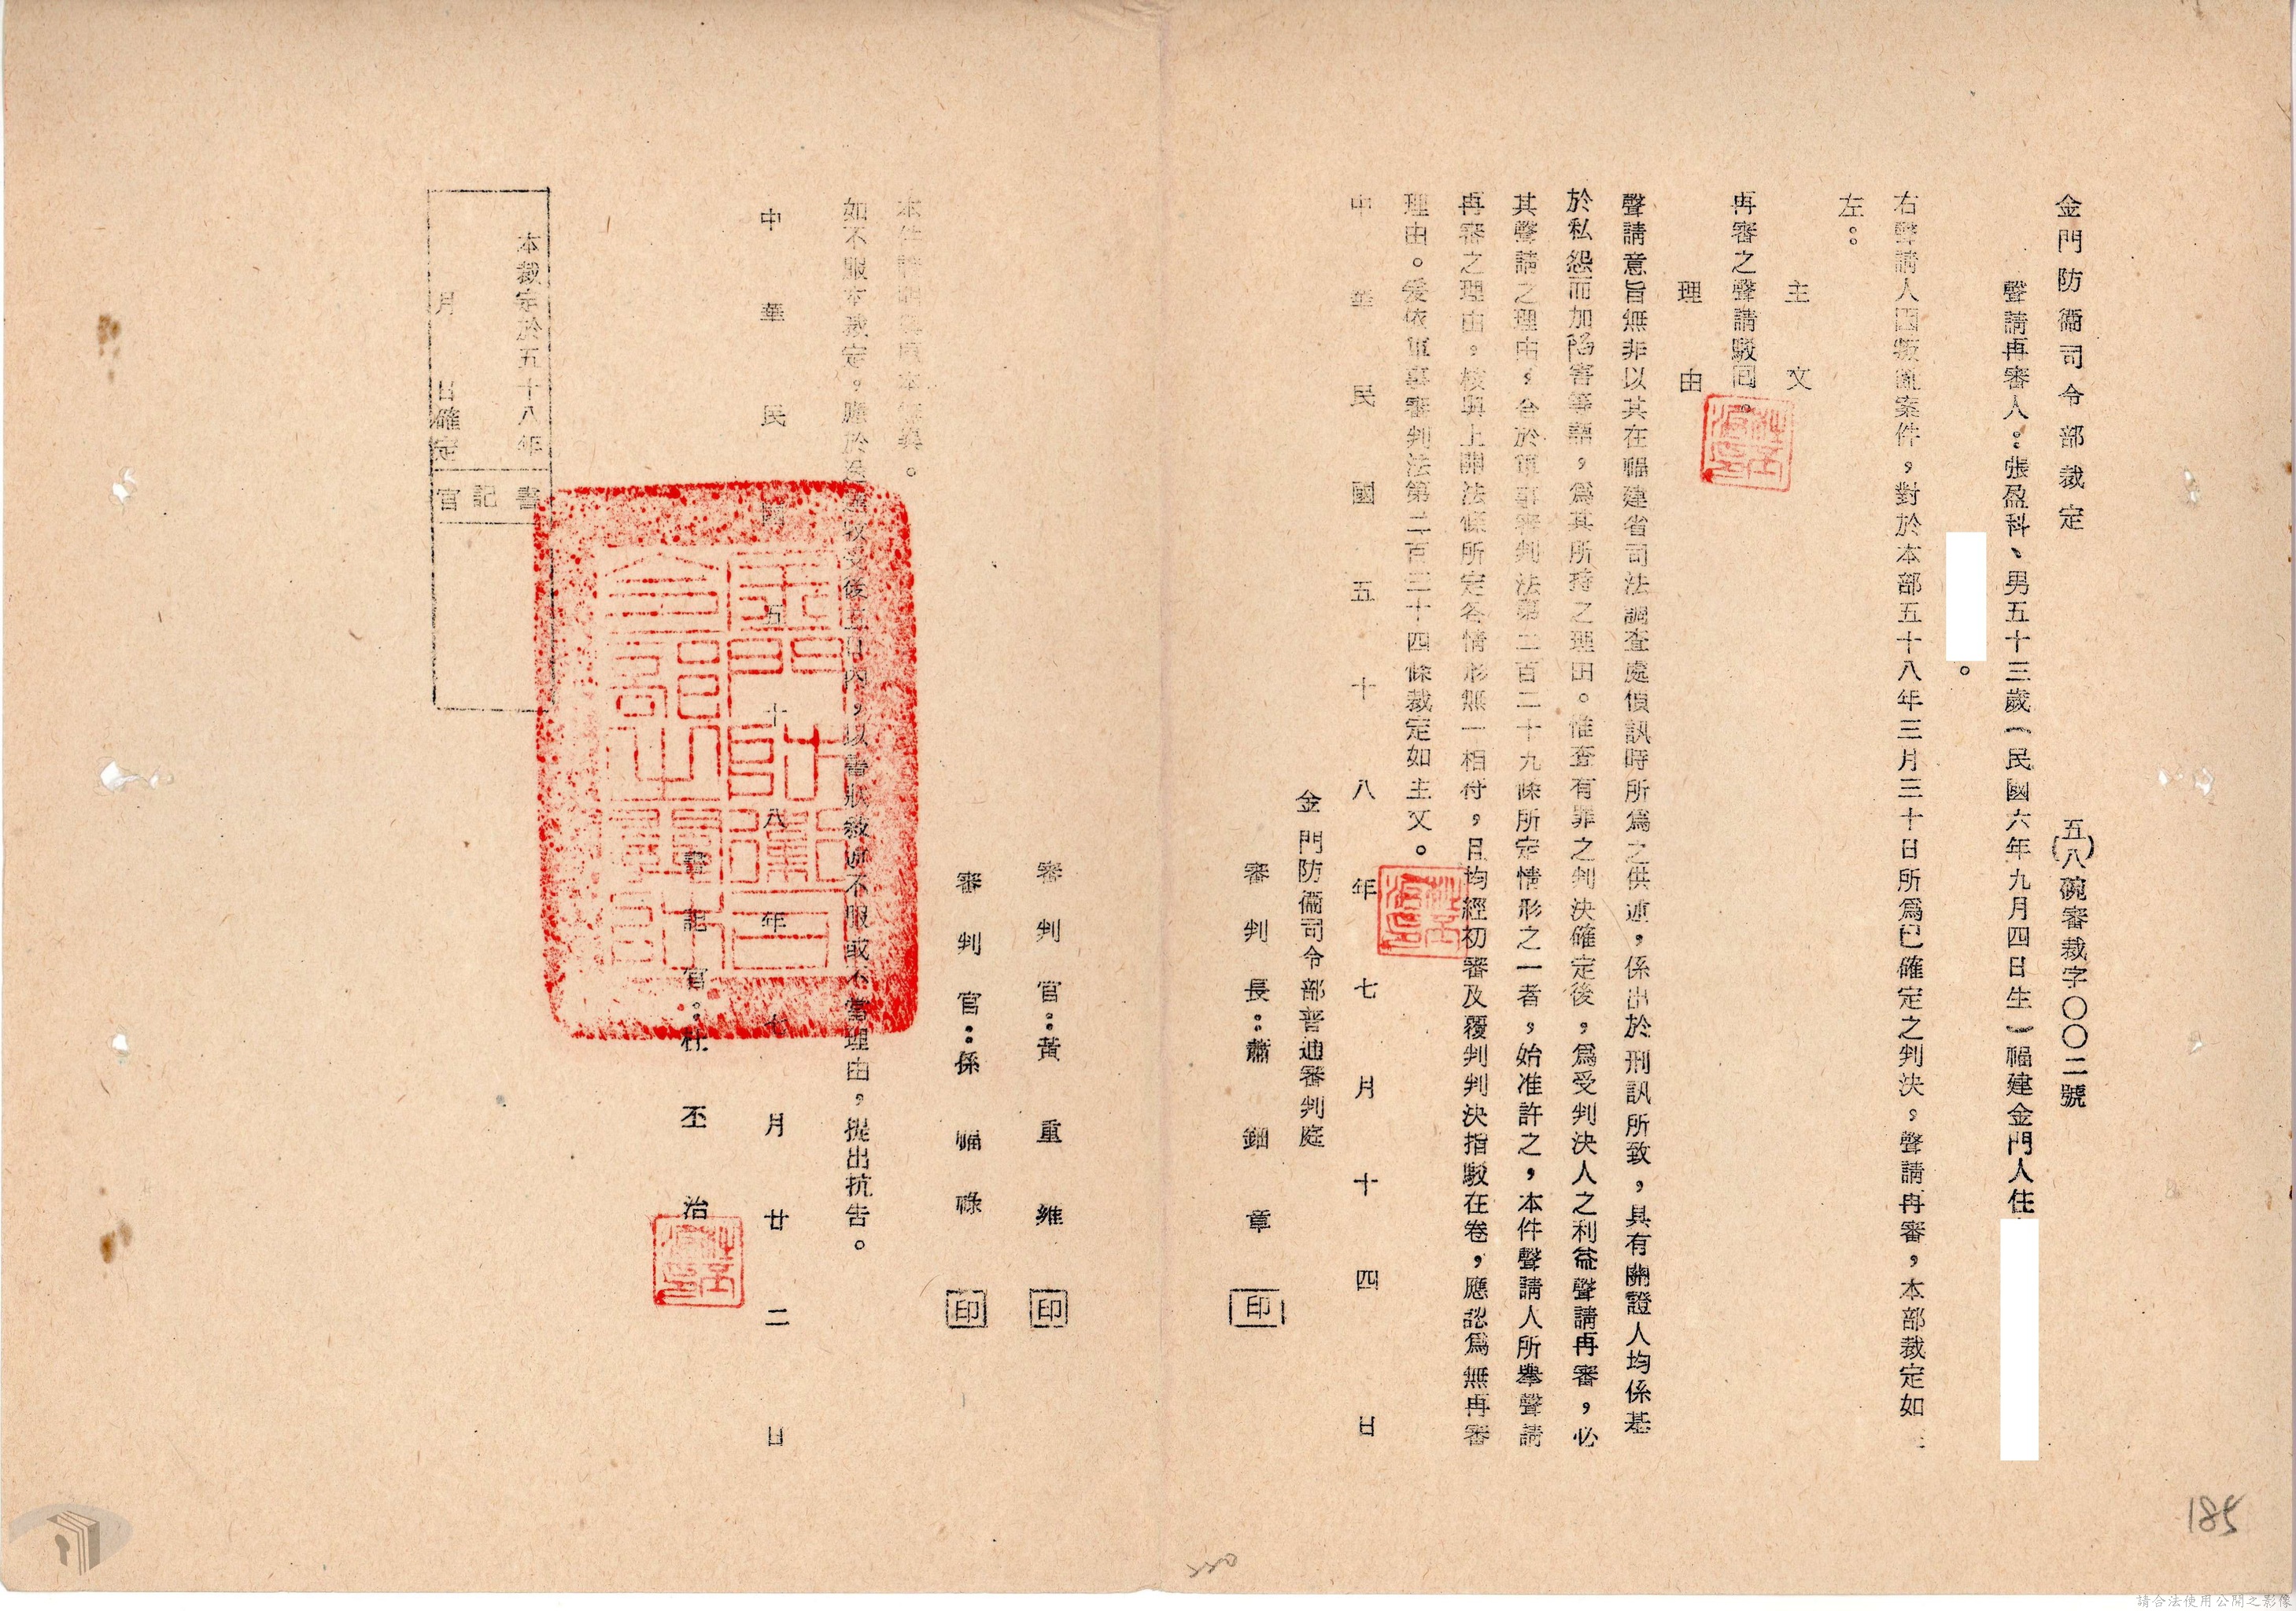 金門防衞司令部裁定
五(八)碗審裁字〇〇二號
聲請再審人：張盈科、男五十三歲（民國六年九月四日生）福建金門人住
。
右聲請人因叛亂案件，對於本部五十八年三月三十日所爲已確定之判決，聲請再審，本部裁定如
左：
主文
再審之聲請駁回。
理由
聲請意旨無非以其在福建省司法調查處偵訊時所爲之供述，係出於刑訊所致，具有關證人均係基
於私怨而加陷害等語，爲其所持之理由。惟查有罪之判決確定後，爲受判決人之利益聲請再審，必
其聲請之理由，合於軍事審判法第二百二十九條所定情形之一者，始准許之，本件聲請人所舉聲請
再審之理由，核與上開法條所定各情形無一相符，且均經初審及覆判判決指駁在卷，應認爲無再審
理由。爰依軍事審判法第二百三十四條裁定如主文。
中華民國五十八年七月十四日
金門防衞司令部普通審判庭
審判長：蕭鈿章 印
審判官：黃重維 印
審判官：係福祿 印
本件證明與原本無異。
如不服本裁定，應於送達收受後五日內，以書狀敍述不服或不當理由，提出抗告。
中華民國五十八年七月廿二日
書記官：杜丕治
本裁定於五十八年
月 日確定
書記官
185
請合法使用公開之影像